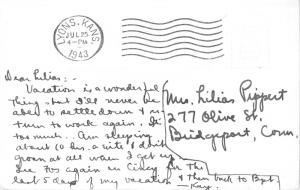 LYONS, KANS.
JUL 25
4-PM
1943
Dear Lilias:-
Vacation is a wonderful
thing - but I'll never be
able to settle down & re
turn to work again. It
too much. Am sleeping
about 10 hrs. a nite &
groan at all when I get up
See you again in for the
last 5 days of my vacation
& then back to Bpt
Kay.
Mrs. Lilias Pippert
277 Olive St.
Bridgeport, Conn.